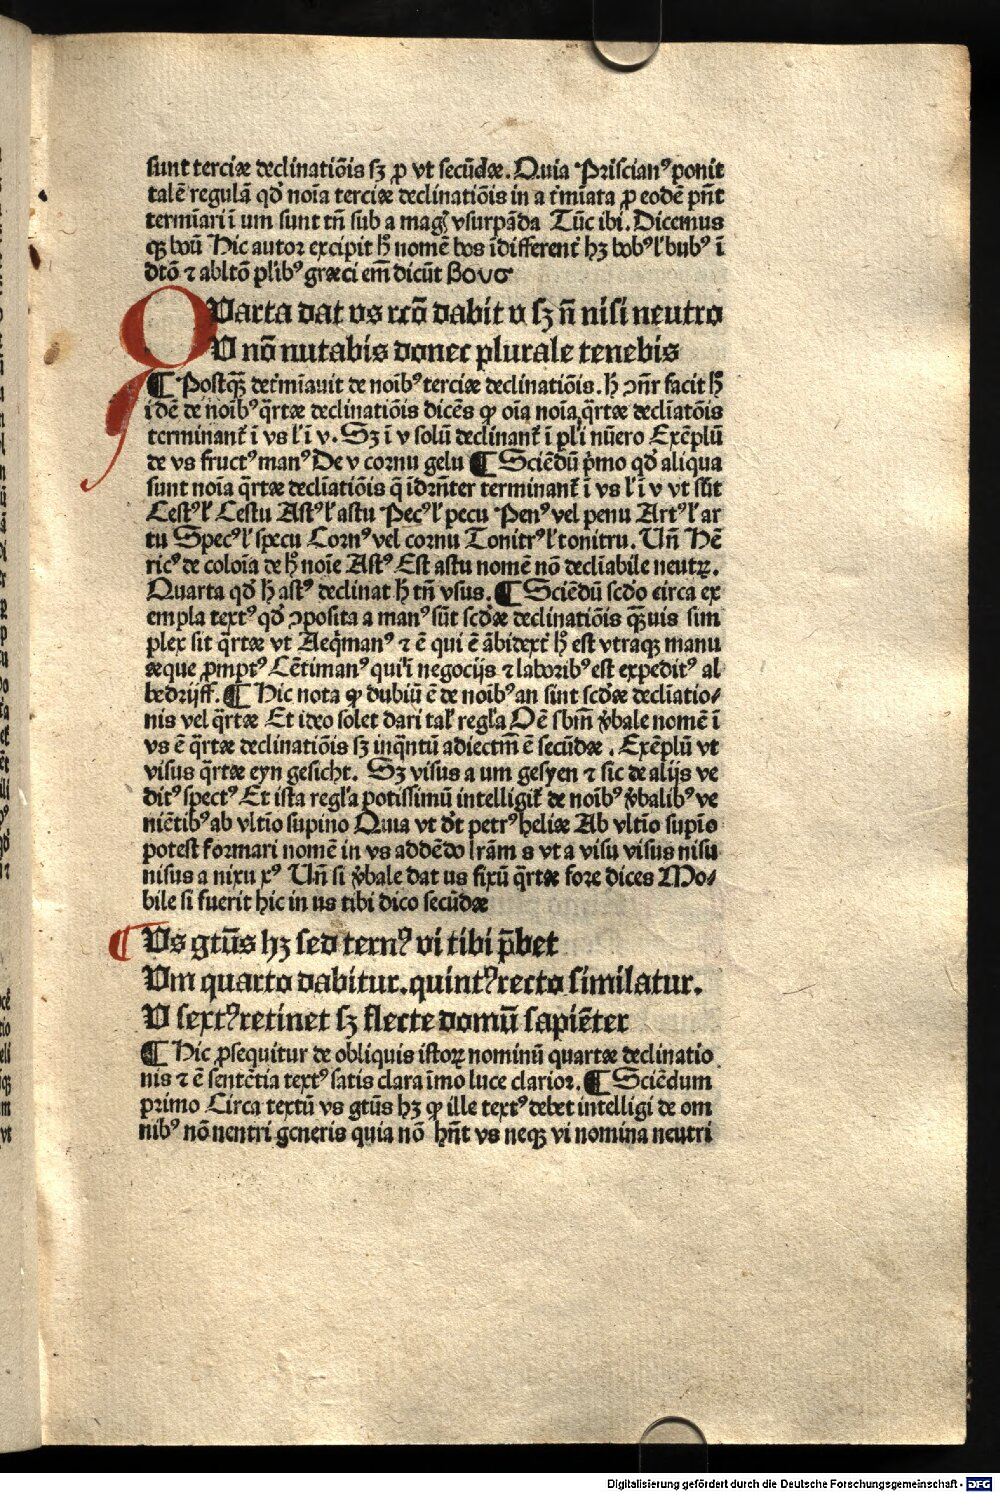 sunt terciæ declinatiõis sʒ ꝓ vt secũdæ. Quia Priscianꝰ ponit
talẽ regulã qđ noĩa terciæ declinatiõis in a t̾mĩata ꝓ eodẽ pñt
termĩari ĩ um sunt tñ sub a mag̾ vsurpãda Tũc ibi. Dicemus
qꝫ boũ Hic autor excipit hͦ nomẽ bos ĩdifferent̾ hꝫ bobꝰ ł bubꝰ ĩ
dtõ ⁊ abltõ pl̃ibꝰ græci em̃ dicũt βους
QVarta dat vs rcõ dabit v sʒ ñ nisi neutro
V nõ nutabis donec plurale tenebis
¶ Postqꝫ̃ det̾mĩauit de noĩbꝰ terciæ declinatiõis. h̾ ↄñr facit hͦ
idẽ de noĩbꝰ q̃rtæ declinatiõis dicẽs ꝙ oĩa noĩa q̃rtæ declĩatõis
terminant̾ ĩ vs ł ĩ v. Sʒ ĩ v solũ declinant̾ ĩ pl̃i nũero Exẽplũ
de vs fructꝰ manꝰ De v cornu gelu ¶ Sciẽdũ p̃mo qđ aliqua
sunt noĩa q̃rtæ declĩatiõis q̃ ĩdr̃nter terminant̾ ĩ vs ł ĩ v vt st̃
Cestꝰ ł Cestu Astꝰ ł astu Pecꝰ ł pecu Penꝰ vel penu Artꝰ ł ar
tu Specꝰ ł specu Cornꝰ vel cornu Tonitrꝰ ł tonitru. Uñ Hẽ
ricꝰ de coloĩa de hͦ noĩe Astꝰ Est astu nomẽ nõ declĩabile neutꝝ.
Quarta qđ h̾ astꝰ declinat h̾ tñ vsus. ¶ Sciẽdũ scđo circa ex
empla textꝰ qđ ↄposita a manꝰ sũt scđæ declinatiõis qꝫ̃uis sim
plex sit q̃rtæ vt Aeq̃manꝰ ⁊ ẽ qui ẽ ãbidext̾ hͦ est vtraqꝫ manu
æque ꝓmptꝰ Cẽtimanꝰ qui ĩ negocijs ⁊ laboribꝰ est expeditꝰ al
bedrijff. ¶ Hic nota ꝙ dubiũ ẽ de noĩbꝰ an sint scđæ declĩatio⸗
nis vel q̃rtæ Et ideo solet dari tał regła Oẽ sbm̃ v̾bale nomẽ ĩ
vs ẽ q̃rtæ declinatiõis sʒ inq̃ntũ adiectm̃ ẽ secũdæ. Exẽplũ vt
visus q̃rtæ eyn gesicht. Sʒ visus a um gesyen ⁊ sic de alijs ve
ditꝰ spectꝰ Et ista regła potissimũ intelligit̾ de noĩbꝰ v̾balibꝰ ve
niẽtibꝰ ab vltĩo supino Quia vt dr̃t petrꝰ heliæ Ab vltĩo supĩo
potest formari nomẽ in vs addẽdo lrãm s vt a visu visus nisu
nisus a nixu xꝰ Uñ si v̾bale dat us fixũ q̃rtæ fore dices Mo⸗
bile si fuerit hic in us tibi dico secũdæ
¶ Vs gtũs hꝫ sed ternꝰ vi tibi p̃bet
Vm quarto dabitur. quintꝰ recto similatur.
V sextꝰ retinet sʒ flecte domũ sapiẽter
¶ Hic ꝓsequitur de obliquis istoꝝ nominũ quartæ declinatio
nis ⁊ ẽ sentẽtia textꝰ satis clara ĩmo luce clarior. ¶ Sciẽdum
primo Circa textũ vs gtũs hꝫ ꝙ ille textꝰ debet intelligi de om
nibꝰ nõ neutri generis quia nõ hñt vs neqꝫ vi nomina neutri
Digitalisierung gefördert durch die Deutsche Forschungsgemeinschaft - DFG